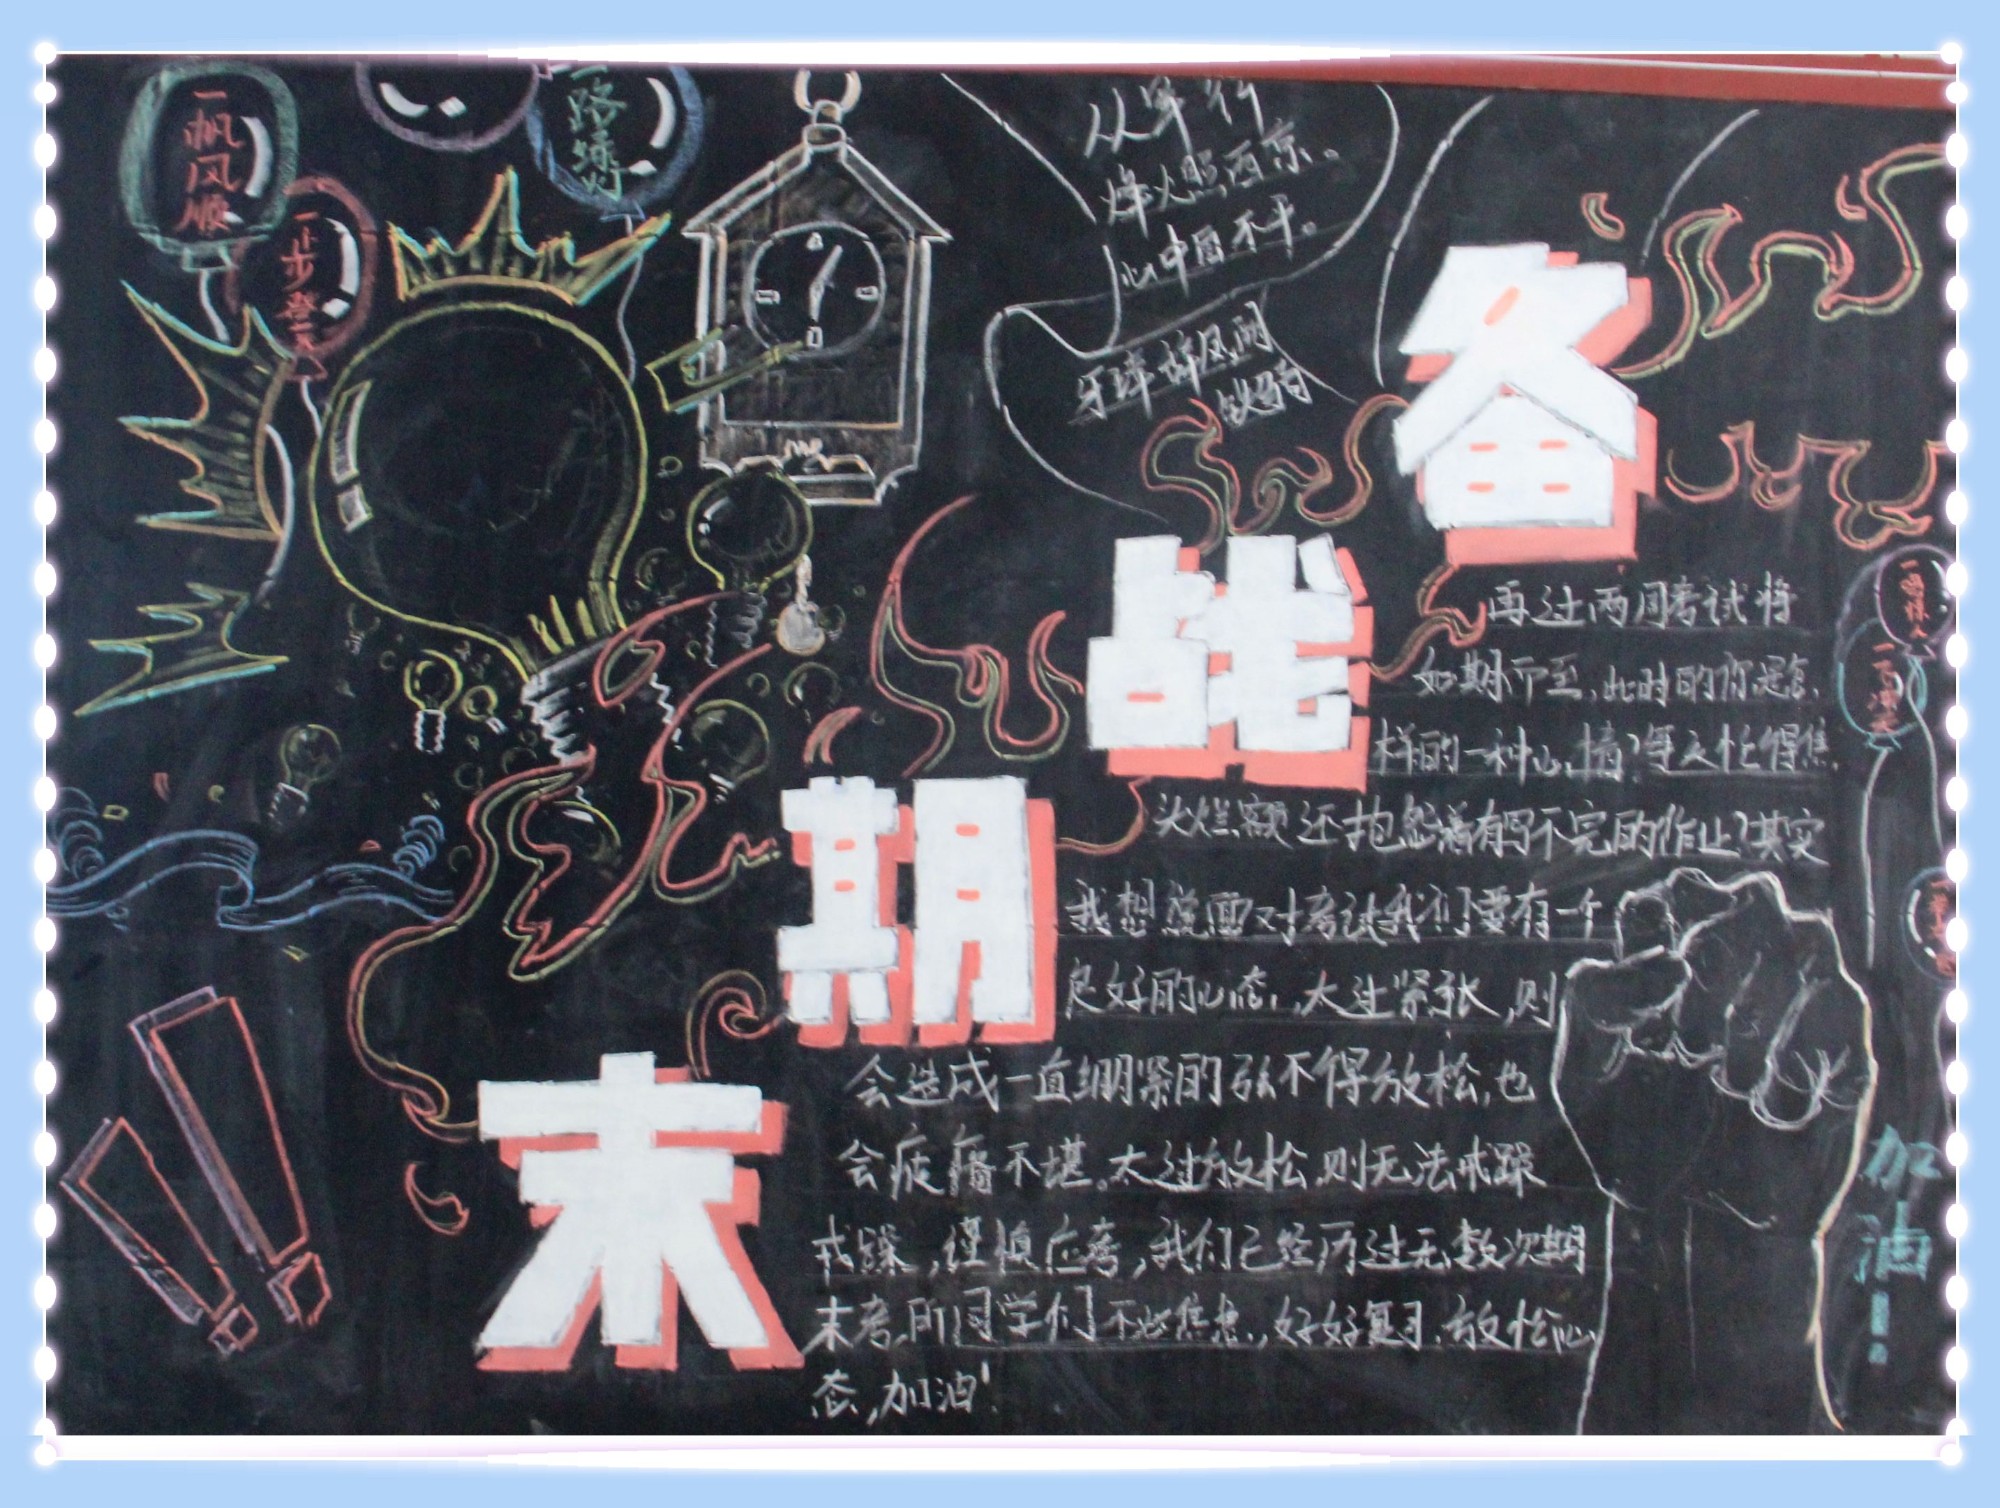 一帆风顺
一步登天
一路绿灯
从军行
烽火照西京。
心中自不平。
牙璋辞凤阙
铁骑
备
战
期
末
再过两周考试将
如期而至,此时的你是怎
样的一种心情?每天忙得焦
头烂额还抱怨着有写不完的作业?其实
我想说面对考试我们要有一个
良好的心态,太过紧张,则
会造成一直绷紧的弦不得放松,也
会疲惫不堪。太过放松,则无法戒躁
戒躁,谨慎应考,我们已经历过无数次期
末考,所同学们不必焦虑,好好复习,放松心
态,加油!
加油!